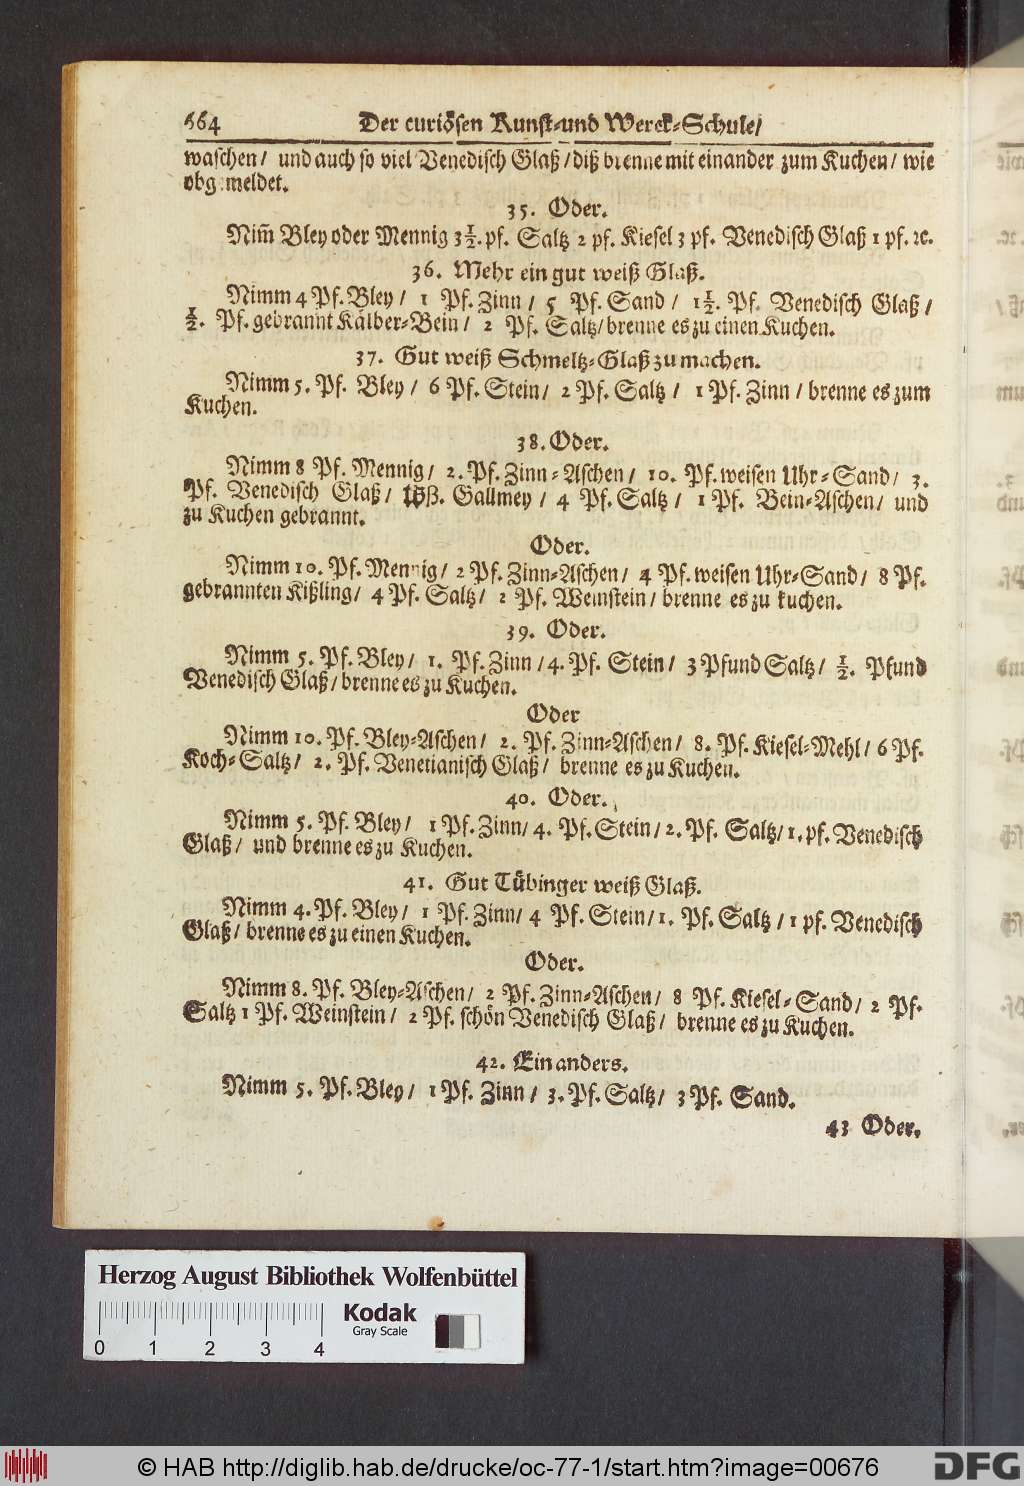 664 Der curiösen Kunst-und Werck-Schule/
waschen/ und auch so viel Venedisch Glaß/ diß brenne mit einander zum Kuchen/ wie
obgemeldet.
35. Oder.
Nim̃ Bley oder Mennig 3½. pf. Saltz 2 pf. Kiesel 3 pf. Venedisch Glaß 1 pf. ꝛc.
36. Mehr ein gut weiß Glaß.
Nimm 4 Pf. Bley/ 1 Pf. Zinn/ 5 Pf. Sand/ 1½. Pf. Venedisch Glaß/
½. Pf. gebrannt Kälber-Bein/ 2 Pf. Saltz/ brenne es zu einen Kuchen.
37. Gut weiß Schmeltz-Glaß zu machen.
Nimm 5. Pf. Bley/ 6 Pf. Stein/ 2 Pf. Saltz/ 1 Pf. Zinn/ brenne es zum
Kuchen.
38. Oder.
Nimm 8 Pf. Mennig/ 2. Pf. Zinn-Aschen/ 10. Pf. weisen Uhr-Sand/ 3.
Pf. Venedisch Glaß/ Gallmey/ 4 Pf. Saltz/ 1 Pf. Bein-Aschen/ und
zu Kuchen gebrannt.
Oder.
Nimm 10. Pf. Mennig/ 2 Pf. Zinn-Aschen/ 4 Pf. weisen Uhr-Sand/ 8 Pf.
gebrannten Kißling/ 4 Pf. Saltz/ 2 Pf. Weinstein/ brenne es zu kuchen.
39. Oder.
Nimm 5. Pf. Bley/ 1. Pf. Zinn/ 4. Pf. Stein/ 3 Pfund Saltz/ ½. Pfund
Venedisch Glaß/ brenne es zu Kuchen.
Oder
Nimm 10. Pf. Bley-Aschen/ 2. Pf. Zinn-Aschen/ 8. Pf. Kiesel-Mehl/ 6 Pf.
Koch-Saltz/ 2. Pf. Venetianisch Glaß/ brenne es zu Kuchen.
40. Oder.
Nimm 5. Pf. Bley/ 1 Pf. Zinn/ 4. Pf. Stein/ 2. Pf. Saltz/ 1. pf. Venedisch
Glaß/ und brenne es zu Kuchen.
41. Gut Tübinger weiß Glaß.
Nimm 4. Pf. Bley/ 1 Pf. Zinn/ 4 Pf. Stein/ 1. Pf. Saltz/ 1 pf. Venedisch
Glaß/ brenne es zu einen Kuchen.
Oder.
Nimm 8. Pf. Bley-Aschen/ 2 Pf. Zinn-Aschen/ 8 Pf. Kiesel-Sand/ 2 Pf.
Saltz 1 Pf. Weinstein/ 2 Pf. schön Venedisch Glaß/ brenne es zu Kuchen.
42. Ein anders.
Nimm 5. Pf. Bley/ 1 Pf. Zinn/ 3. Pf. Saltz/ 3 Pf. Sand.
43 Oder.
Herzog August Bibliothek Wolfenbüttel
Kodak
Gray Scale
0 1 2 3 4
© HAB http://diglib.hab.de/drucke/oc-77-1/start.htm?image=00676
DFG